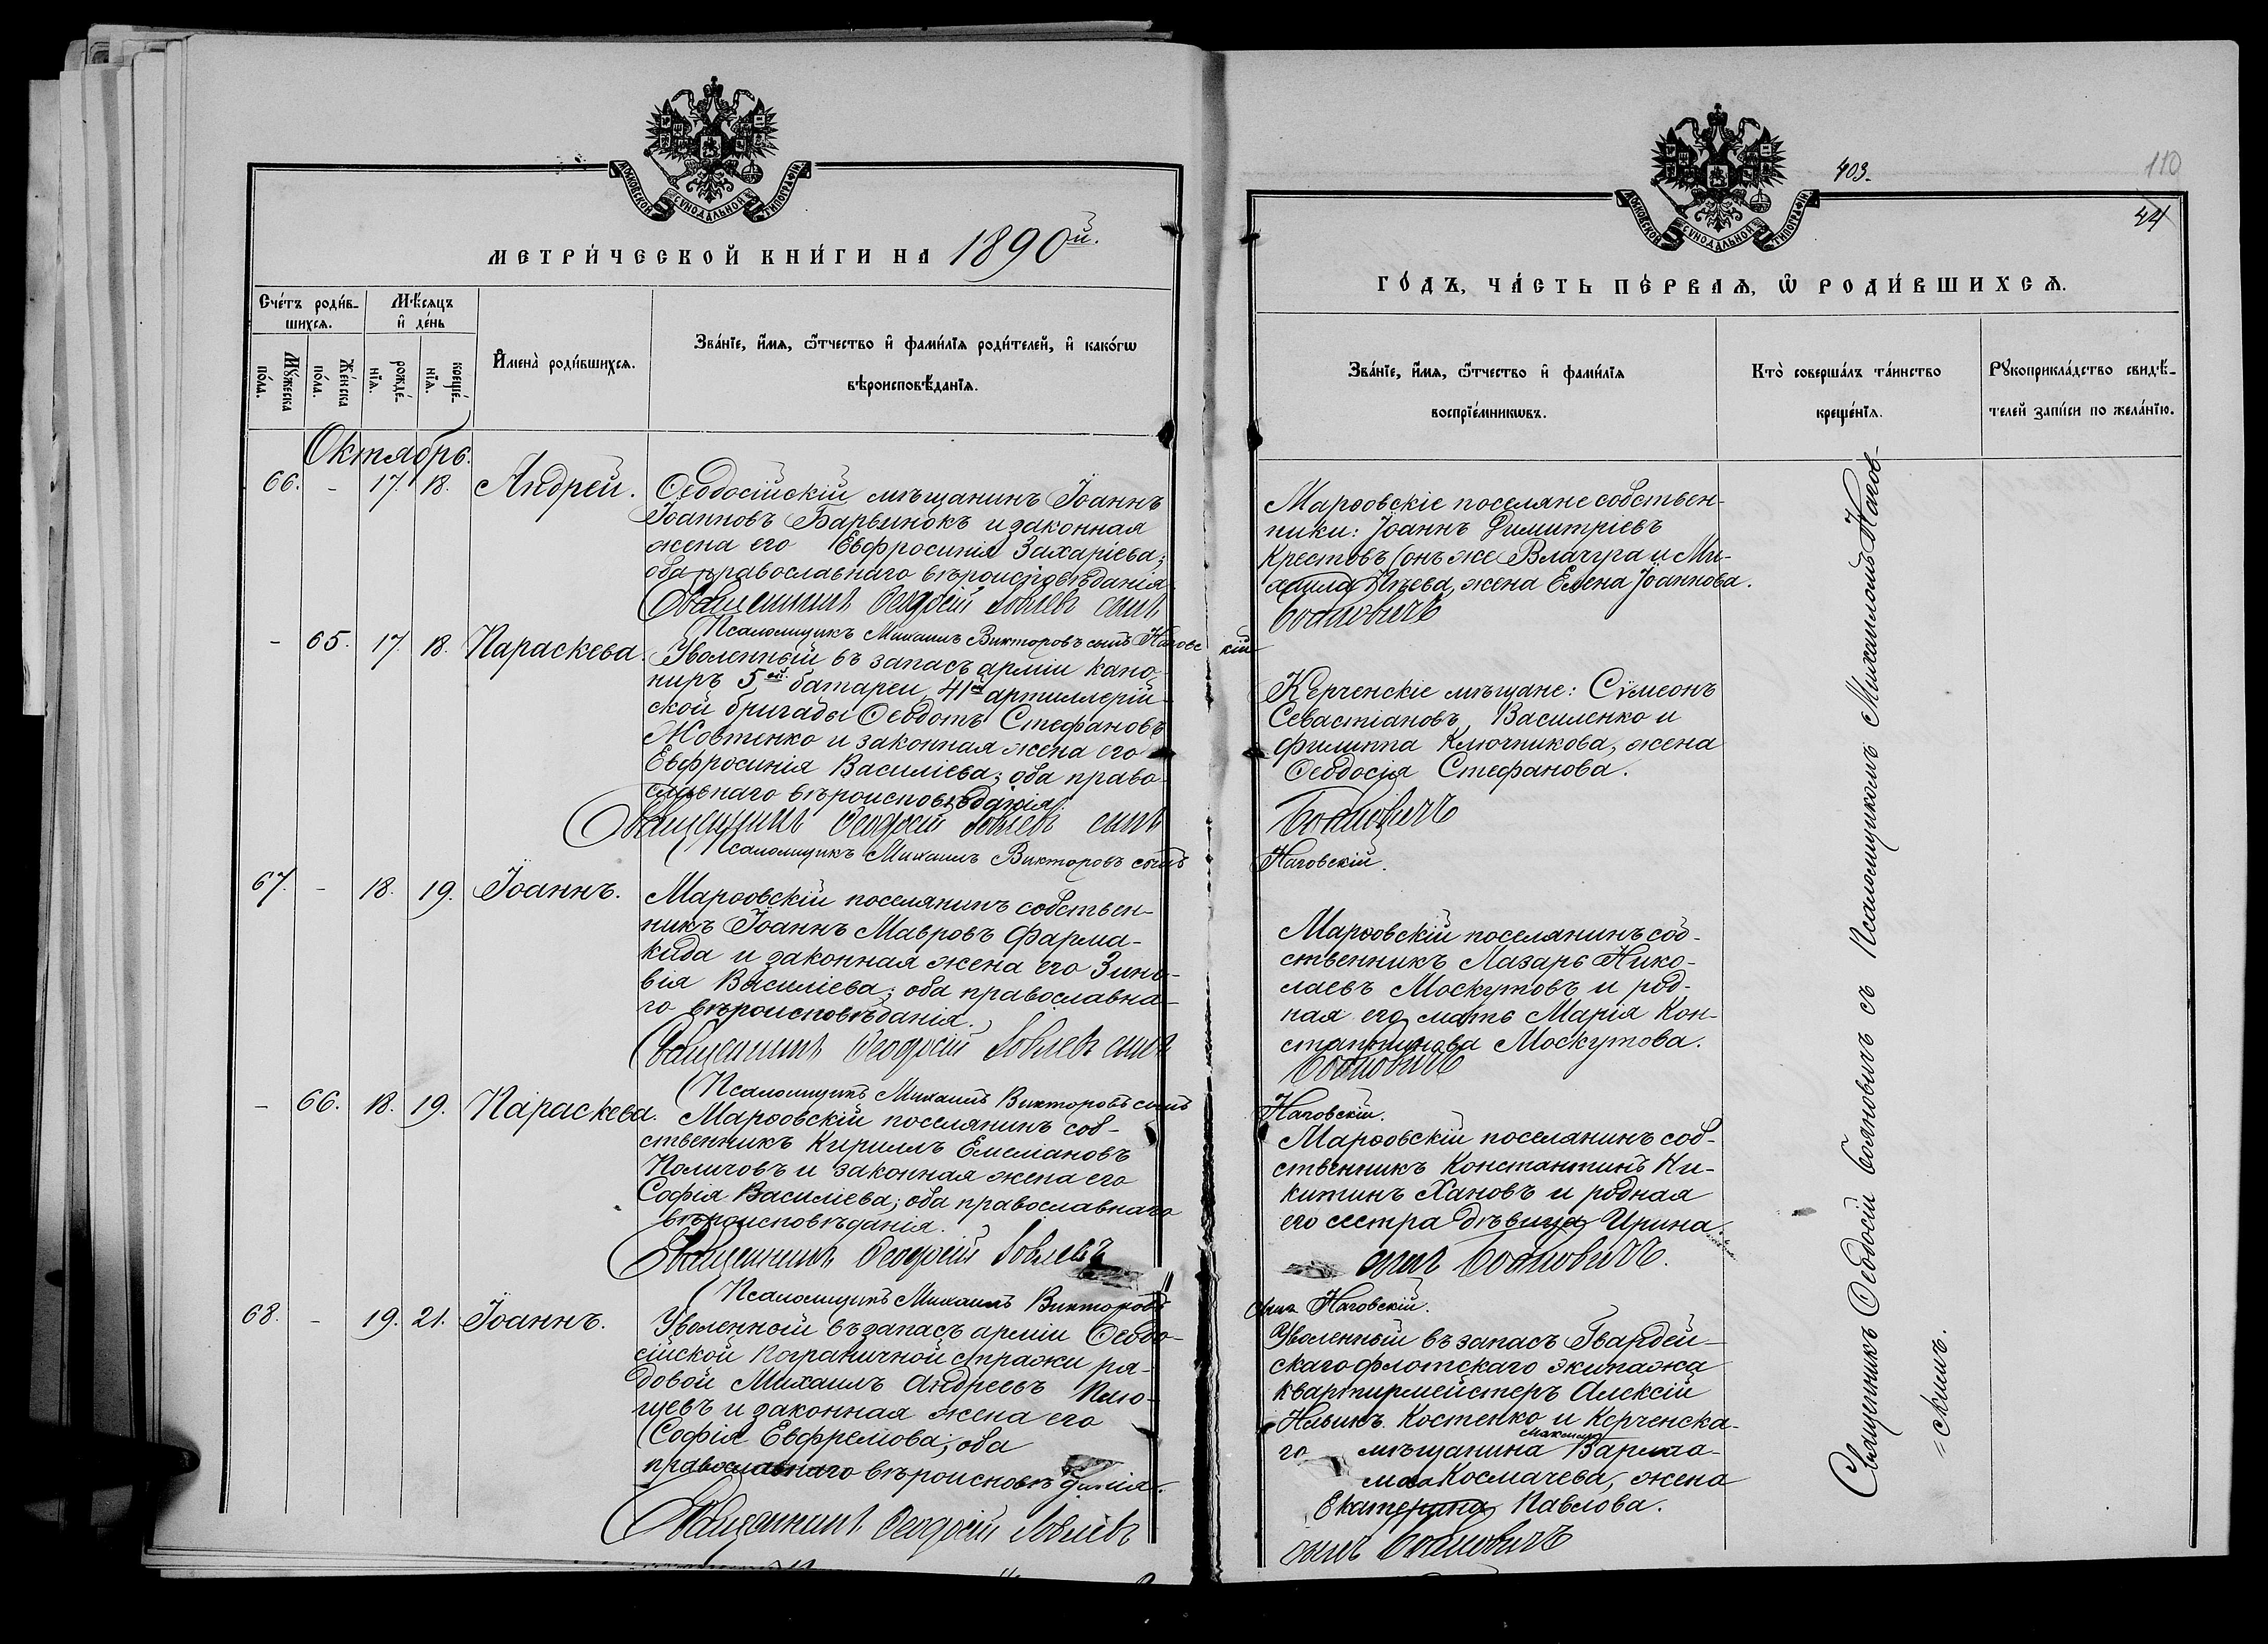 МОСКОВСКОЙ СѴНОДАЛЬНОЙ ТИПОГРАФІИ
МЕТРИ́ЧЕСКОЙ КНИ́ГИ НА 1890й.
Сче́тъ роди́в-
шихсѧ.
Мѣ́сѧцъ
и҆ де́нь
Мꙋ́жеска
по́ла.
Же́нска
по́ла.
рожде́-
нїѧ.
креще́-
нїѧ.
И҆мена̀ роди́вшихсѧ.
Зва́нїе, и҆́мѧ, ѻ҆́тчество и҆ фами́лїѧ роди́телей, и҆ како́гѡ
вѣроисповѣ́данїѧ.
Октябрь.
66. - 17. 18. Андрей.
Ѳеодосійскій мѣщанинъ Іоаннъ
Іоанновъ Барвинокъ и законная
жена его Евфросинія Захаріева;
оба православнаго вѣроисповѣданія.
Священникъ Ѳеодосій сынъ
Псаломщикъ Михаилъ Викторовъ сынъ Наговс
- 65. 17. 18. Параскева.
Уволенный въ запасъ арміи кано-
ниръ 5ой батареи 41й артиллерій-
ской бригады Ѳеодотъ Стефановъ
Жовтенко и законная жена его
Евфросинія Василіева; оба право-
славнаго вѣроисповѣданія.
Священникъ Ѳеодосій сынъ
Псаломщикъ Михаилъ Викторовъ сынъ
67. - 18. 19. Іоаннъ.
Марѳовскій поселянинъ собствен-
никъ Іоаннъ Мавровъ Фарма-
кида и законная жена его Зино-
вія Василіева; оба православна-
го вѣроисповѣданія.
Священникъ Ѳеодосій сынъ
Псаломщикъ Михаилъ Викторовъ сынъ
- 66. 18. 19. Параскева.
Марѳовскій поселянинъ соб-
ственникъ Кириллъ Емельяновъ
Поличовъ и законная жена его
Софія Василіева; оба православнаго
вѣроисповѣданія.
Священникъ Ѳеодосій
Псаломщикъ Михаилъ Викторовъ
68. - 19. 21. Іоаннъ.
Уволенный въ запасъ арміи Ѳеодо-
сійской пограничной стражи ря-
довой Михаилъ Андреевъ Плю-
щевъ и законная жена его
Софія Евфремова; оба
православнаго вѣроисповѣданія.
Священникъ Ѳеодосій
МОСКОВСКОЙ СѴНОДАЛЬНОЙ ТИПОГРАФІИ
403.
110
44
ГО́ДЪ, ЧА́СТЬ ПЕ́РВАѦ, Ѡ҆ РОДИ́ВШИХСѦ.
Зва́нїе, и҆́мѧ, ѻ҆́тчество и҆ фами́лїѧ
воспрїе́мникѡвъ.
Кто̀ соверша́лъ та́инство
креще́нїѧ.
Рꙋкоприкла́дство свидѣ́-
телей за́писи по жела́нїю.
Марѳовскіе поселяне собствен-
ники: Іоаннъ Димитріевъ
Крестовъ (онъ же Влачуга и Ми-
хаила жена Елена Іоаннова.
Бояновичъ
кій
Керченскіе мѣщане: Сѵмеонъ
Севастіановъ Василенко и
Филиппа Ключникова, жена
Ѳеодосія Стефанова.
Бояновичъ
Наговскій.
Марѳовскій поселянинъ соб-
ственникъ Лазарь Нико-
лаевъ Москутовъ и род-
ная его мать Марія Кон-
стантинова Москутова.
Бояновичъ
Наговскій.
Марѳовскій поселянинъ соб-
ственникъ Константинъ Ни-
китинъ Хановъ и родная
его сестра дѣвица Ирина.
сынъ Бояновичъ.
сынъ Наговскій.
Уволенный въ запасъ Гвардей-
скаго флотскаго экипажа
квартирмейстеръ Алексій
Ильинъ Костенко и Керченска-
го мѣщанина Варлаа-
ма Космачева, жена
Екатерина Павлова.
сынъ Бояновичъ
Священникъ Ѳеодосій Бояновичъ съ Псаломщикомъ Михаиломъ Нагов-
=скимъ.